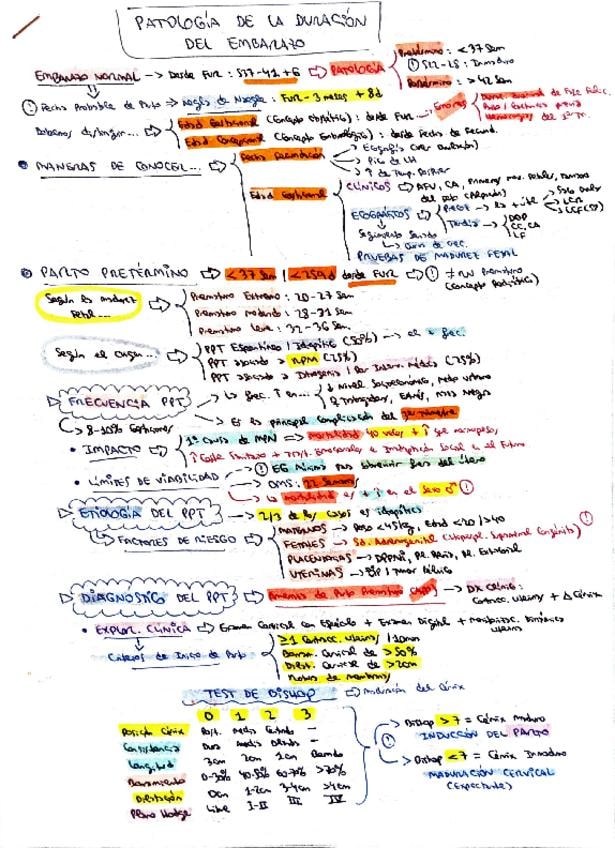 PATOLOGÍA DE LA DURACIÓN
DEL EMBARAZO
EMBARAZO NORMAL -> Desde FUR: S37-41+6 => PATOLOGÍA
Pretérmino: <37 Sem
S22-28: Inmaduro
Postérmino: >42 Sem
! Fecha Probable de Parto => Regla de Naegele: FUR - 3 meses + 8d
Errores
Debemos distinguir...
Edad Gestacional (Concepto Obstétrico): desde FUR
Edad Concepcional (Concepto Embriológico): desde fecha de Fecund.
MANERAS DE CONOCER...
Fecha Fecundación
Pico de LH
↑ de Temp.
Edad Gestacional
CLÍNICOS -> AFU, CA,
ECOGRÁFICOS
Precoz -> Es + útil
LCR
Tardía
DBP
CC, CA
LF
Seguimiento Seriado
PRUEBAS DE MADUREZ FETAL
PARTO PRETÉRMINO => <37 Sem / <259d desde FUR => ! ≠ RN Prematuro
(Concepto Pediátrico)
Según la madurez
Fetal...
Prematuro Extremo: 20-27 Sem
Prematuro Moderado: 28-31 Sem
Prematuro Leve: 32-36 Sem
Según el Origen...
PPT Espontáneo / Idiopático (50%) -> el + frec.
PPT asociado a RPM (25%)
PPT asociado a Iatrogenia / Por Interv. Médica (25%)
FRECUENCIA PPT
-> La frec. ↑ en... ↓ Nivel Socioeconómico, Medio Urbano
Trabajadoras, Estrés, Raza Negra
8-10% Gestaciones
-> Es la principal complicación del 3er trimestre
IMPACTO
1ª Causa de MPN => Mortalidad 40 veces + ↑
↑ Coste Sanitario + Trast. Emocionales e Inadaptación Social en el Futuro
LÍMITES DE VIABILIDAD
! EG Mínima para sobrevivir fuera del útero
OMS: 22 Semanas
La mortalidad es + ↑ en el Sexo ♂ !
ETIOLOGÍA DEL PPT => 2/3 de los casos es idiopática
FACTORES DE RIESGO
MATERNOS -> Peso <45kg, Edad <20/>40
FETALES -> Sd. Adrenogenital (Hiperpl. Suprarrenal Congénita) !
PLACENTARIOS -> DPPNI, Pl. Previa, Pl. Extracorial
UTERINAS -> DIP / Tumor Pélvico
DIAGNÓSTICO DEL PPT => Amenaza de Parto Prematuro (APP) -> DX Clínico:
Contracc. Uterinas + Δ Cérvix
EXPLOR. CLÍNICA => Examen Cervical con Espéculo + Examen Digital + Monitorizac. Dinámica
Uterina
Criterios de Inicio de Parto
≥1 Contracc. Uterina / 10min
Borram. Cervical de >50%
Dilat. Cervical de >2cm
Rotura de membranas
TEST DE BISHOP => Maduración del Cérvix
0 1 2 3
Posición Cérvix Post. Medio Centrado -
Consistencia Duro Medio Blando -
Longitud 3cm 2cm 1cm Borrado
Borramiento 0-30% 40-50% 60-70% >70%
Dilatación 0cm 1-2cm 3-4cm >4cm
Plano Hodge Libre I-II III IV
! Bishop >7 = Cérvix Maduro
INDUCCIÓN DEL PARTO
Bishop <7 = Cérvix Inmaduro
MADURACIÓN CERVICAL
(Expectante)